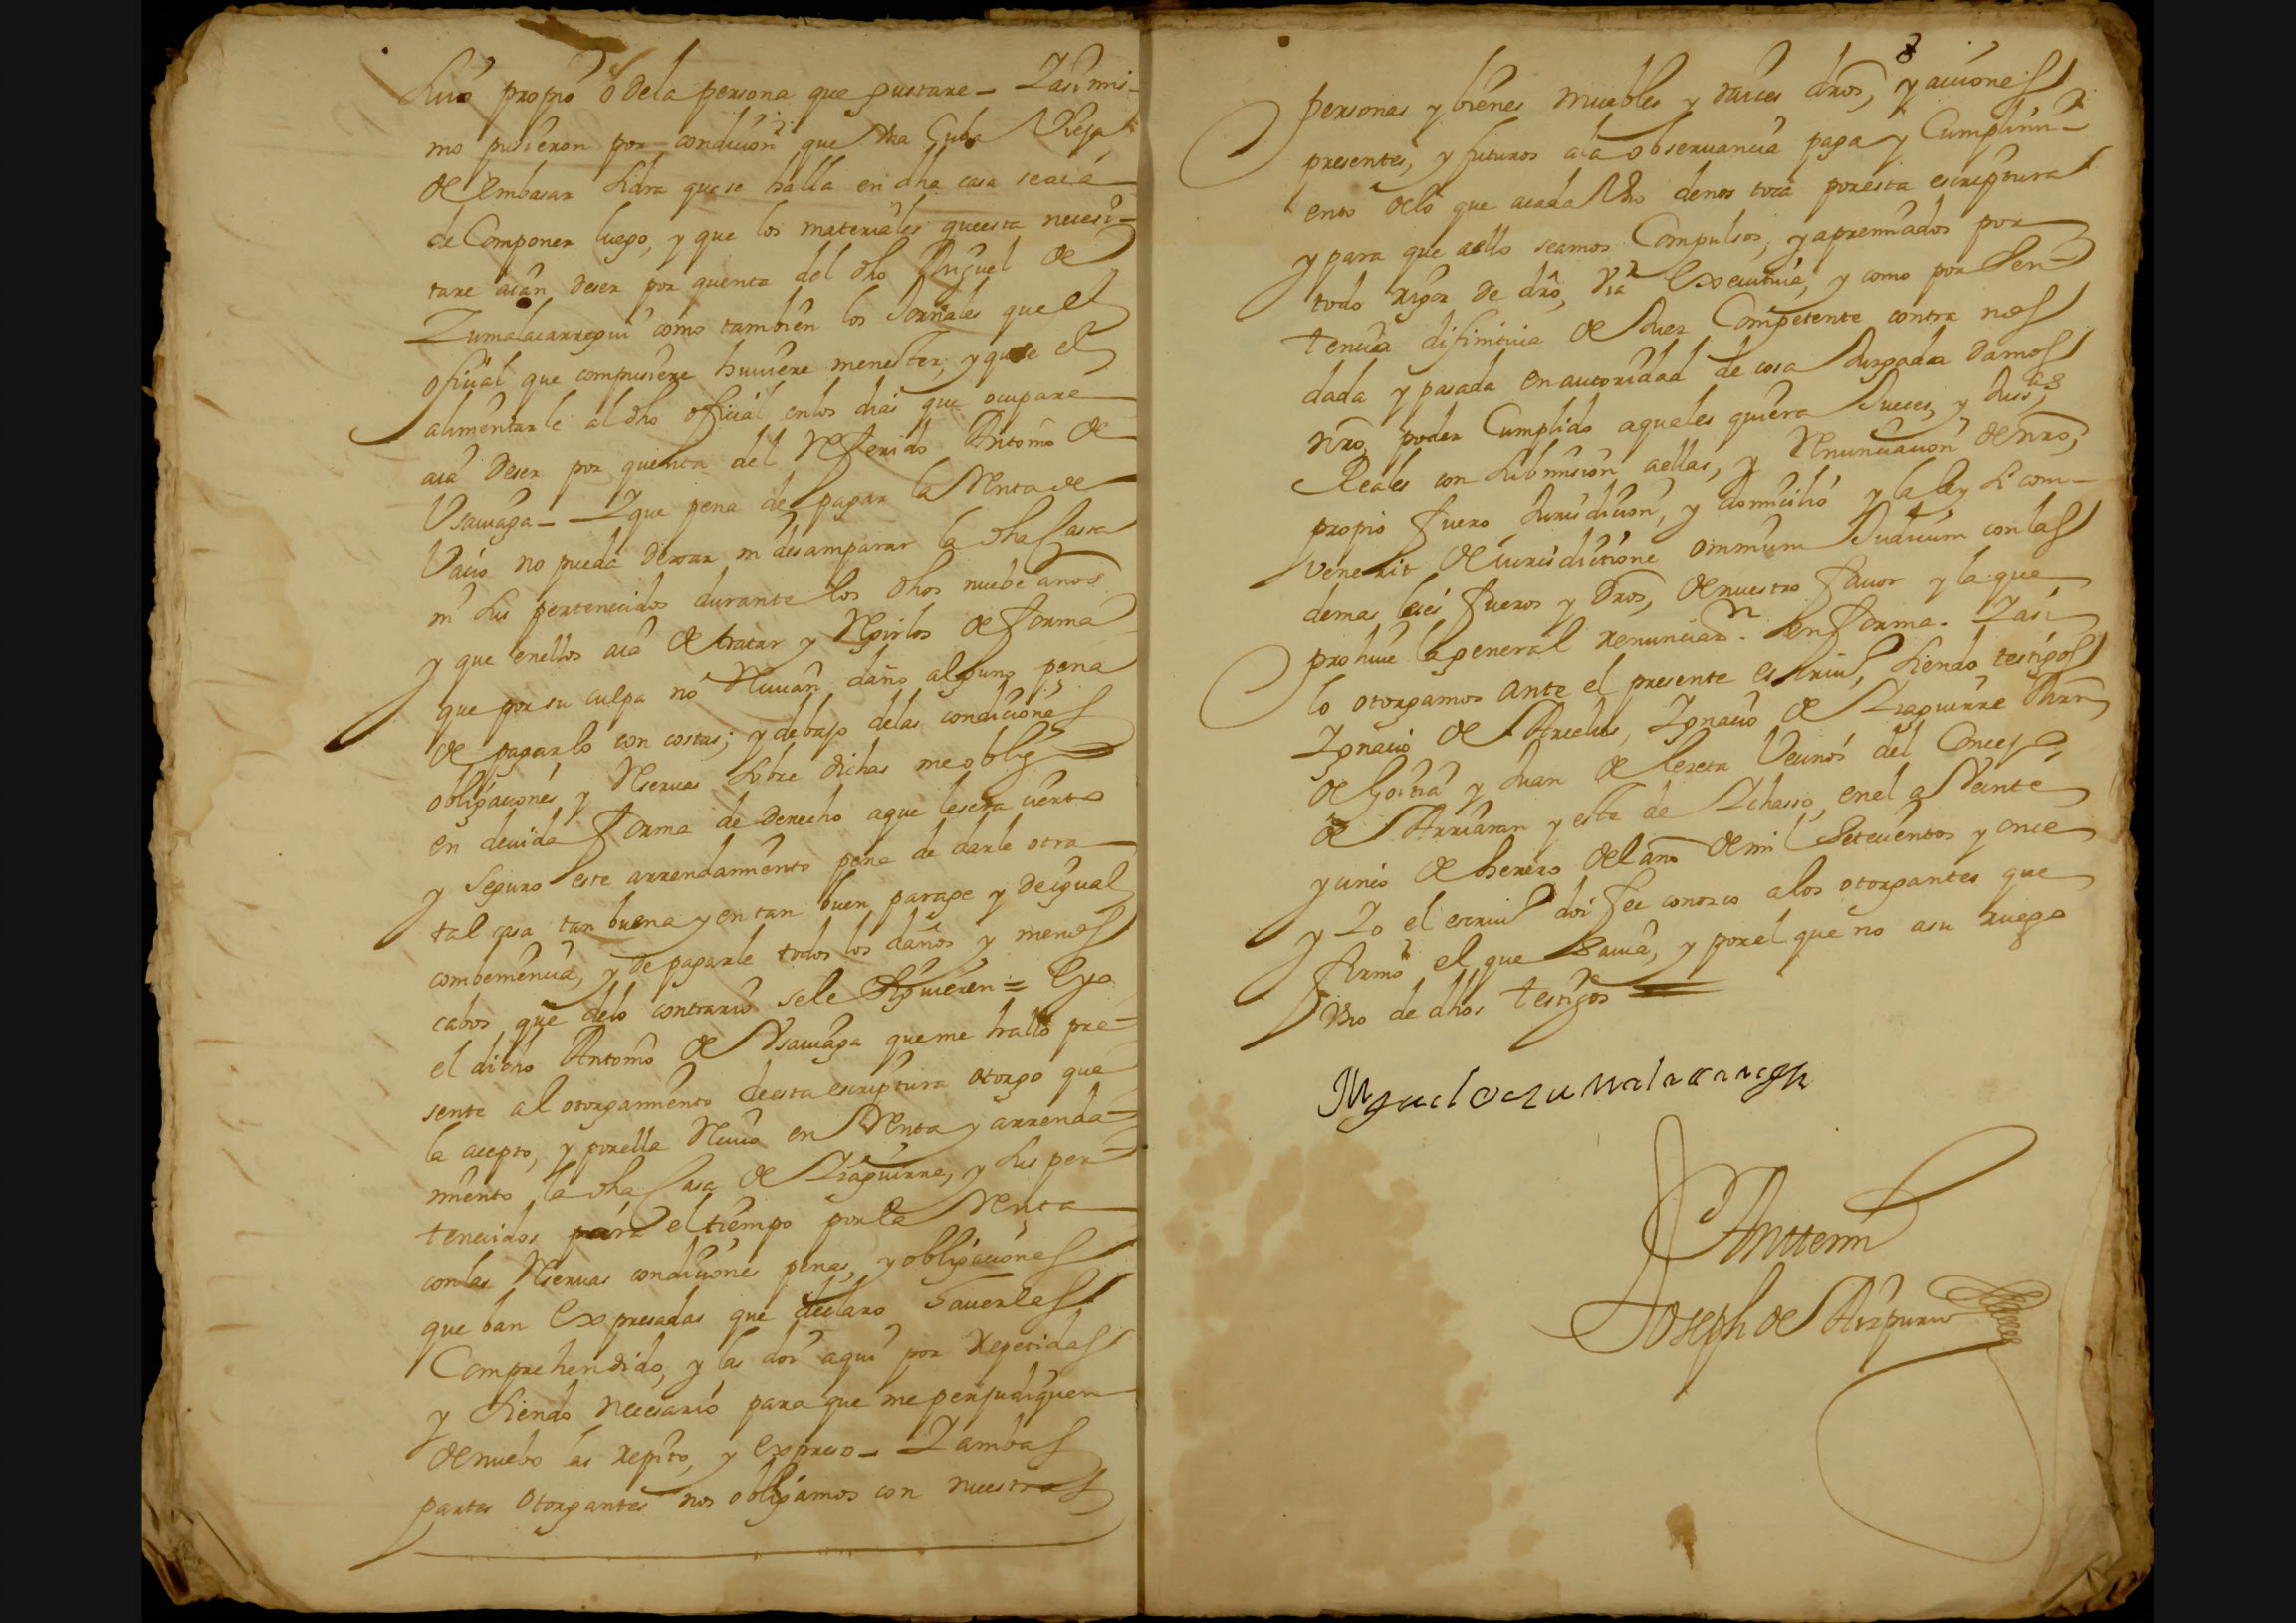 suio propio o dela persona que gustare - Y asi mis-
mo pusieron por condicion que Vna Cuba Vieja
de embasar sidra que se halla en dha casa se aia
de Componer luego, y que los materiales que esta necesi-
tare aian deser por quenta del dho Miguel de
Zumalacarregui como tambien los Jornales que el
ofizial que compusiere huuiere menester, y que el
alimentarle al dho oficial enlos dias que ocupare
aia deser por quenta del Referido Antonio de
Vsauiaga - Y que pena de pagar la Renta de
Vacio no pueda dexar ni desamparar la dha Cassa
ni sus pertenecidos durante los dhos nuebe años
y que enellos aia de tratar y Regirlos de forma
que por su culpa no Reciuan daño alguno pena
de pagarlo con costas; y debajo delas condiciones
obligaciones y Reseruas sobre dichas me obligo
en deuida forma de derecho aque lesera cierto
y seguro este arrendamiento pena de darle otra
tal casa tan buena y en tan buen parage y de igual
combeniencia, y de pagarle todos los daños y menos
cabos que delo contrario sele siguieren = E yo
el dicho Antonio de Vsauiaga que me hallo pre-
sente al otorgamiento deesta escriptura otorgo que
la acepto, y por ella Reciuo en Renta y arrenda-
miento la dha Casa de Yraguirre, y sus per-
tenecidos para el tiempo por la Renta
con las Reseruas condiciones penas, y obligaciones
que ban Expresadas que declaro hauerlas
Comprehendido, y las doi aqui por Repetidas
y siendo necesario para que me perjudiquen
de nuebo las repito, y expreso - Y ambas
partes Otorgantes nos obligamos con nuestras
personas y bienes muebles y raices dros, y acciones
presentes, y futuros ala obseruancia paga y Cumplimi-
ento delo que acada Vno denos toca por esta escriptura
y para que aello seamos Compulsos, y apremiados por
todo rigor de dro, Via Executiua, y como por Sen-
tencia difinitiua de Juez Competente contra nos
dada y pasada en autoridad de cosa Juzgada damos
nro poder Cumplido aquales quiera Jueces, y Juss.as
Reales con submision aellas, y Renunciacion de nro,
propio fuero Jurisdicion, y domicilio y la ley si com-
venerit de iurisdictione omnium Judicum con las
demas leies fueros y dros, de nuestro fauor y la que
prohiue la general renunciaz.n en forma. Y asi
lo otorgamos ante el presente escriuº, siendo testigos
Ygnacio de Ynacio de Yraguirre
de Goitia y Juan de Vecinos del Concejo
de Arriaran y este de Ychasso, en el a Veinte
y cinco de henero del año de mil Setecientos y once
y Yo el escriuº doi fee conozco alos otorgantes que
firmo el que sauia, y por el que no a su ruego
Vno de dhos testigos
Miguel de zumalacarregui
Antte mi
Joseph de Aizpuru